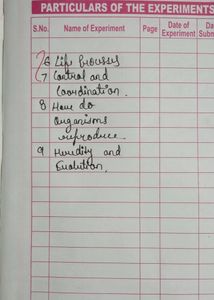 PARTICULARS OF THE EXPERIMENTS
S.No. Name of Experiment Page Date of Experiment Da Subm
6 Life Processes
7 Control and
Coordination.
8 How do
Organisms
reproduce
9 Heredity and
Evolution.